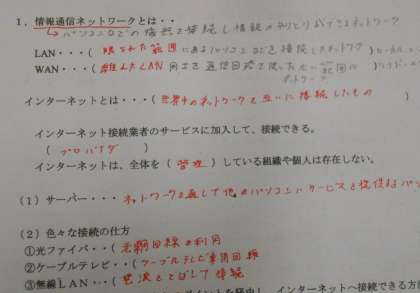 1，情報通信ネットワークとは・・
パソコンなどの情報で接続し情報のやりとりができるネットワーク
LAN・・・（限られた範囲にあるパソコンなどを接続したネットワーク）
WAN・・・（離れたLAN同士を通信回線で使った
ネットワーク
インターネットとは・・・（世界中のネットワークを互いに接続したもの　）
インターネット接続業者のサービスに加入して、接続できる。
（プロバイダ　）
インターネットは、全体を（管理）している組織や個人は存在しない。
（1）サーバー・・・ネットワークを通して他のパソコンにサービスを提供する
（2）色々な接続の仕方
①光ファイバ・・（光
回線の利用
②ケーブルテレビ・・（ケーブルテレビ専用回線
③無線LAN・・（電波をとばして接続
インターネットへ接続できる